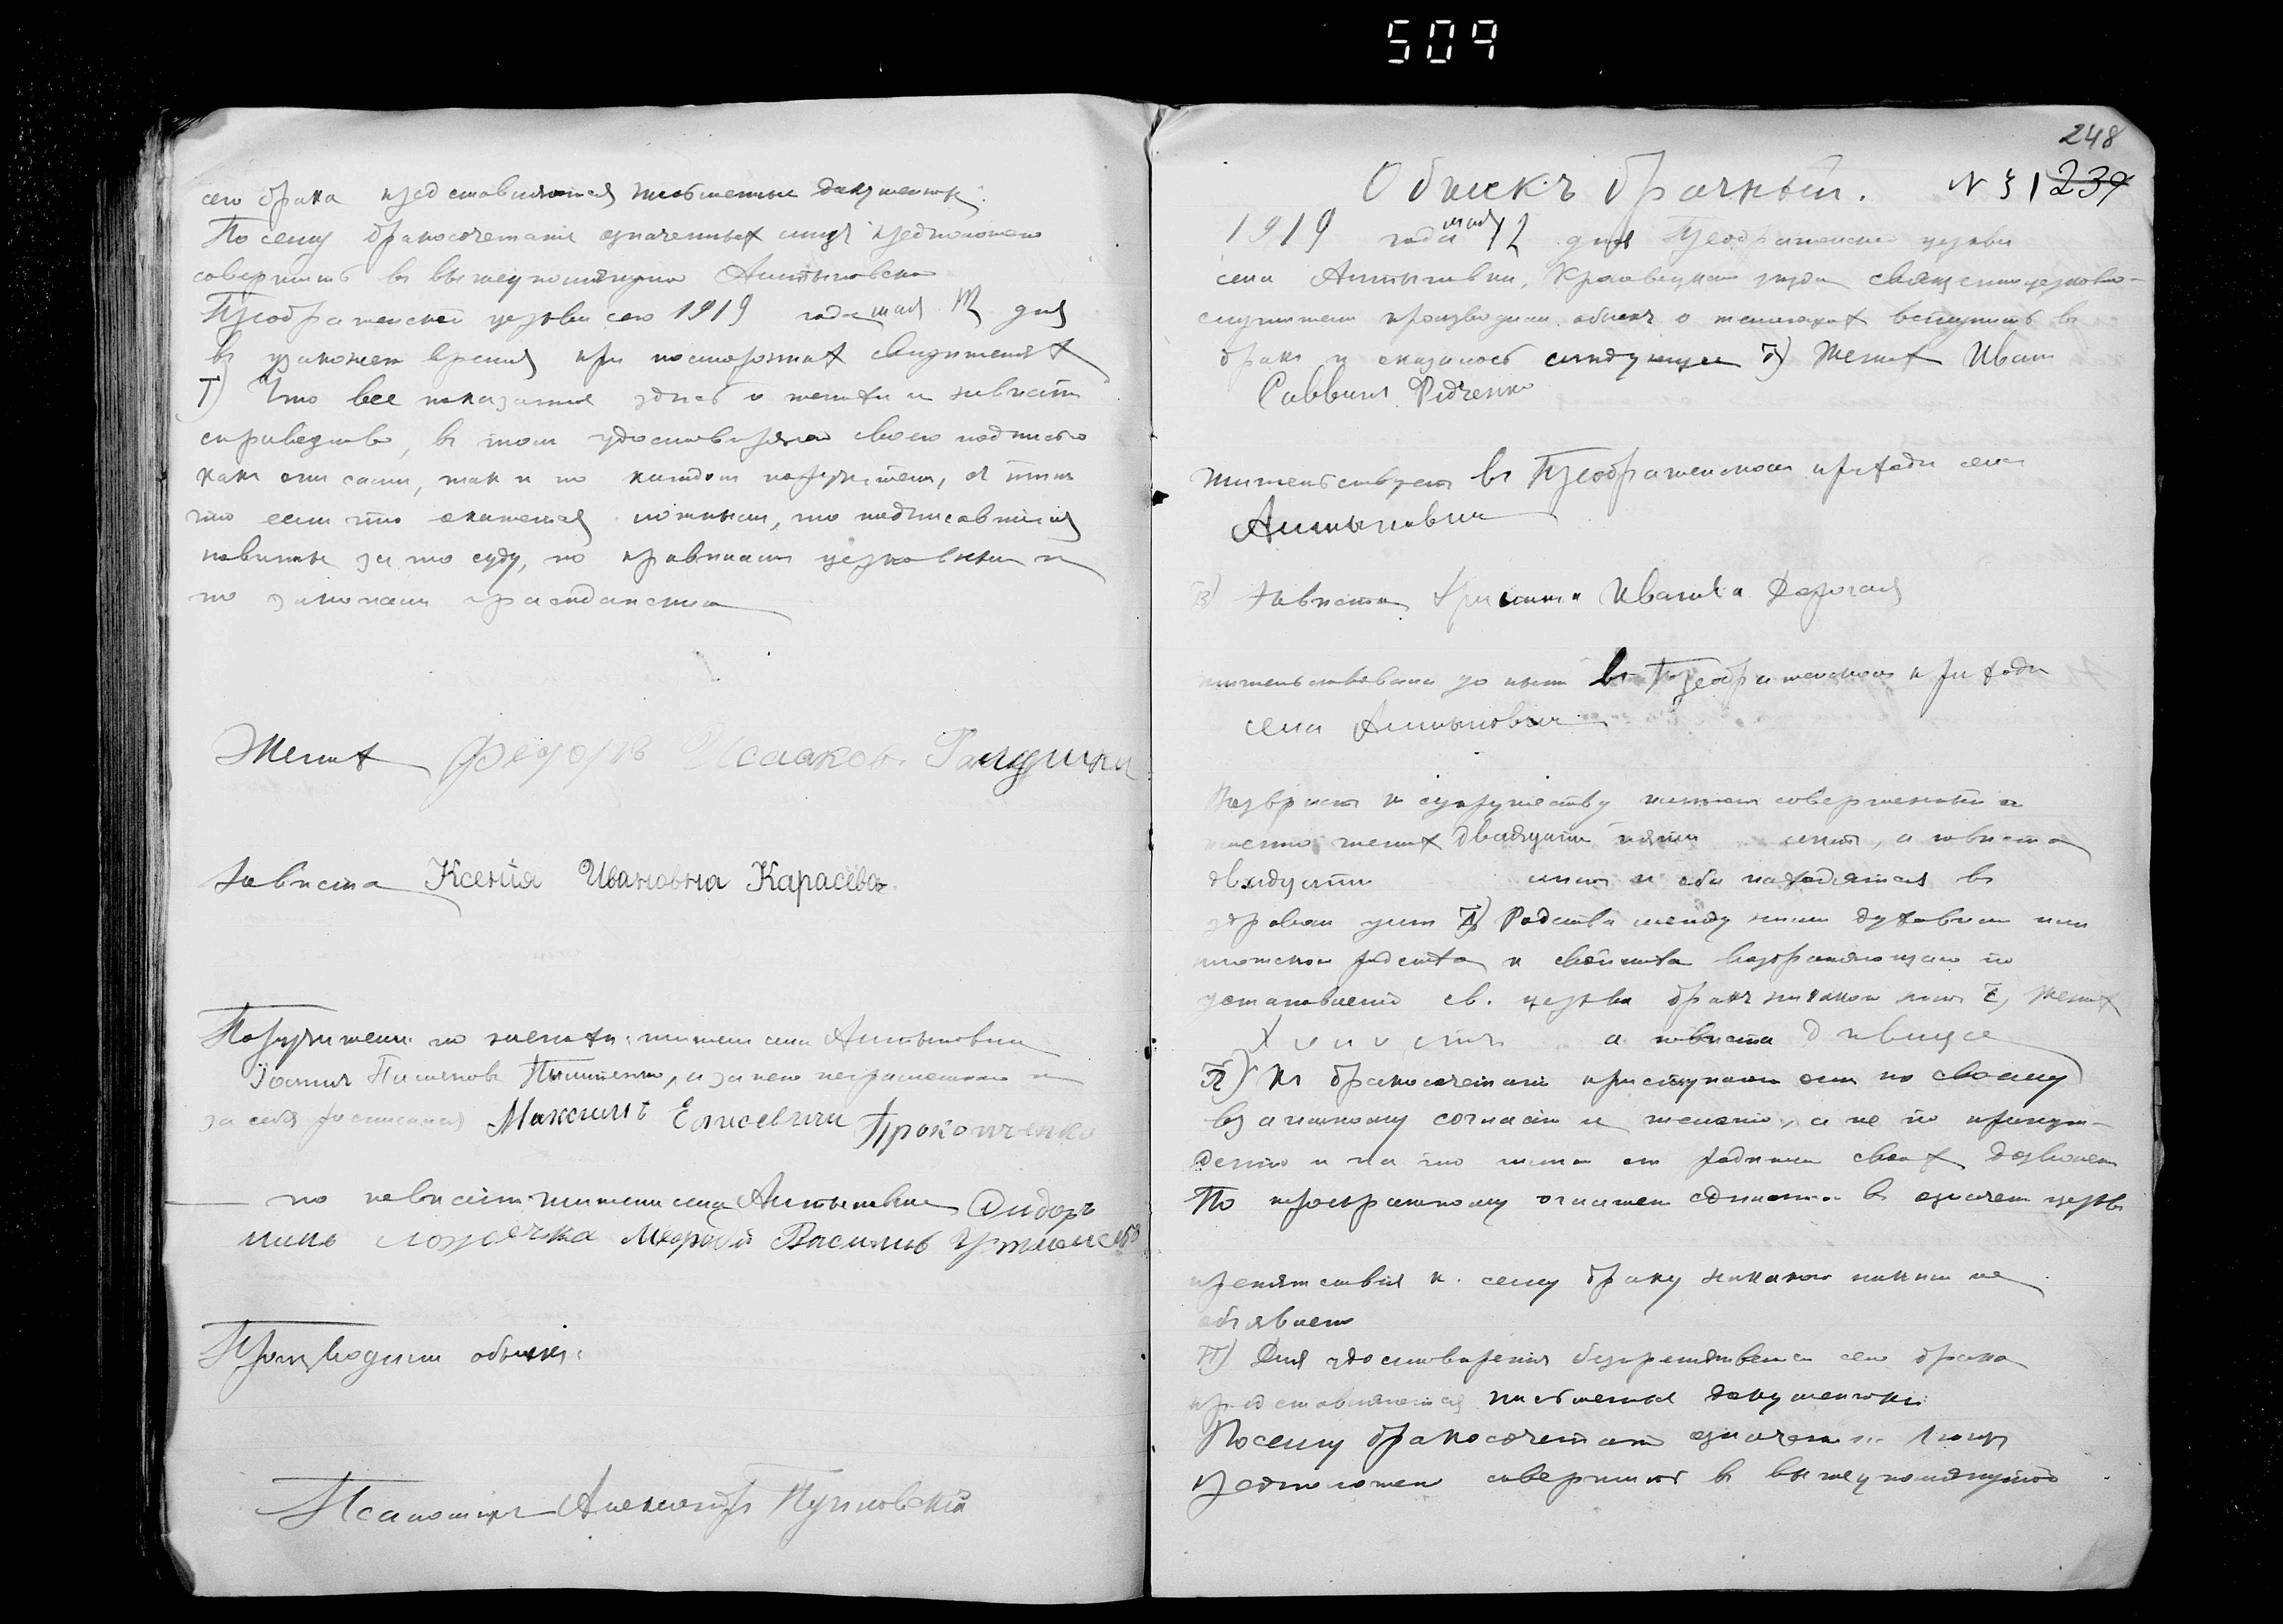 509
сего брака представляются письменные документы.
По сему бракосочетание означенных лицъ предположено
совершить въ вышеупомянутой Алтыновской
Преображенской церкви сего 1919 года мая 12 дня
въ узаконен время при посторонних свидетелях
Г) Что все показанное здесь о женихе и невесте
справедливо, въ том удостоверяют своею подписью
какъ они сами, так и по каждом поручители, съ тем
что если что окажется ложным, то подписавшиеся
повинны за то суду, по правилам церковным и
по законам гражданским
Жених Федоръ Исааков.
Невеста Ксенія Ивановна Карасёва
Поручители по женихе: жители села Алтыновки
и за него неграмотного и
за себя росписался Максимъ Елисевичъ Прокопченко
по невесте жители села Алтыновки
Василивъ
Производили обыскъ:
Псаломщикъ Александръ
248
Обыскъ брачный. № 31 239
1919 года мая 12 дня Преображенской церкви
села Алтыновки, Кролевецкаго уезда священноцерковно-
служители производили обыскъ о желающих вступить въ
бракъ и оказалось следующее а) Жених Иван
Саввинъ Радченко
жительствуетъ въ Преображенском приходе села
Алтыновки
В) Невеста Ивановна Дорогая
жительствовала до ныне въ Преображенском приходе
села Алтыновки
Возрастъ к супружеству имеют совершенный а
именно жених двадцати пяти летъ, а невеста
двадцати летъ и оба находятся въ
здравом уме Д) Родства между ними духовнаго или
плотскаго родства и свойства возбраняющаго по
установленію св. церкви бракъ никакого нетъ Е) Жених
Холостъ а невеста девица
К бракосочетанію приступают они по своему
взаимному согласію и желанію, а не по принуж-
денію и на то имеют от родителей своих дозволен
По троекратному оглашен сделанном въ означен церкви
препятствія к сему браку никакого никем не
объявлено
П) Для удостоверенія безпрепятственности сего брака
представляются письменные документы:
Посему бракосочетание означенн. лицъ
предположено совершить въ вышеупомянутой